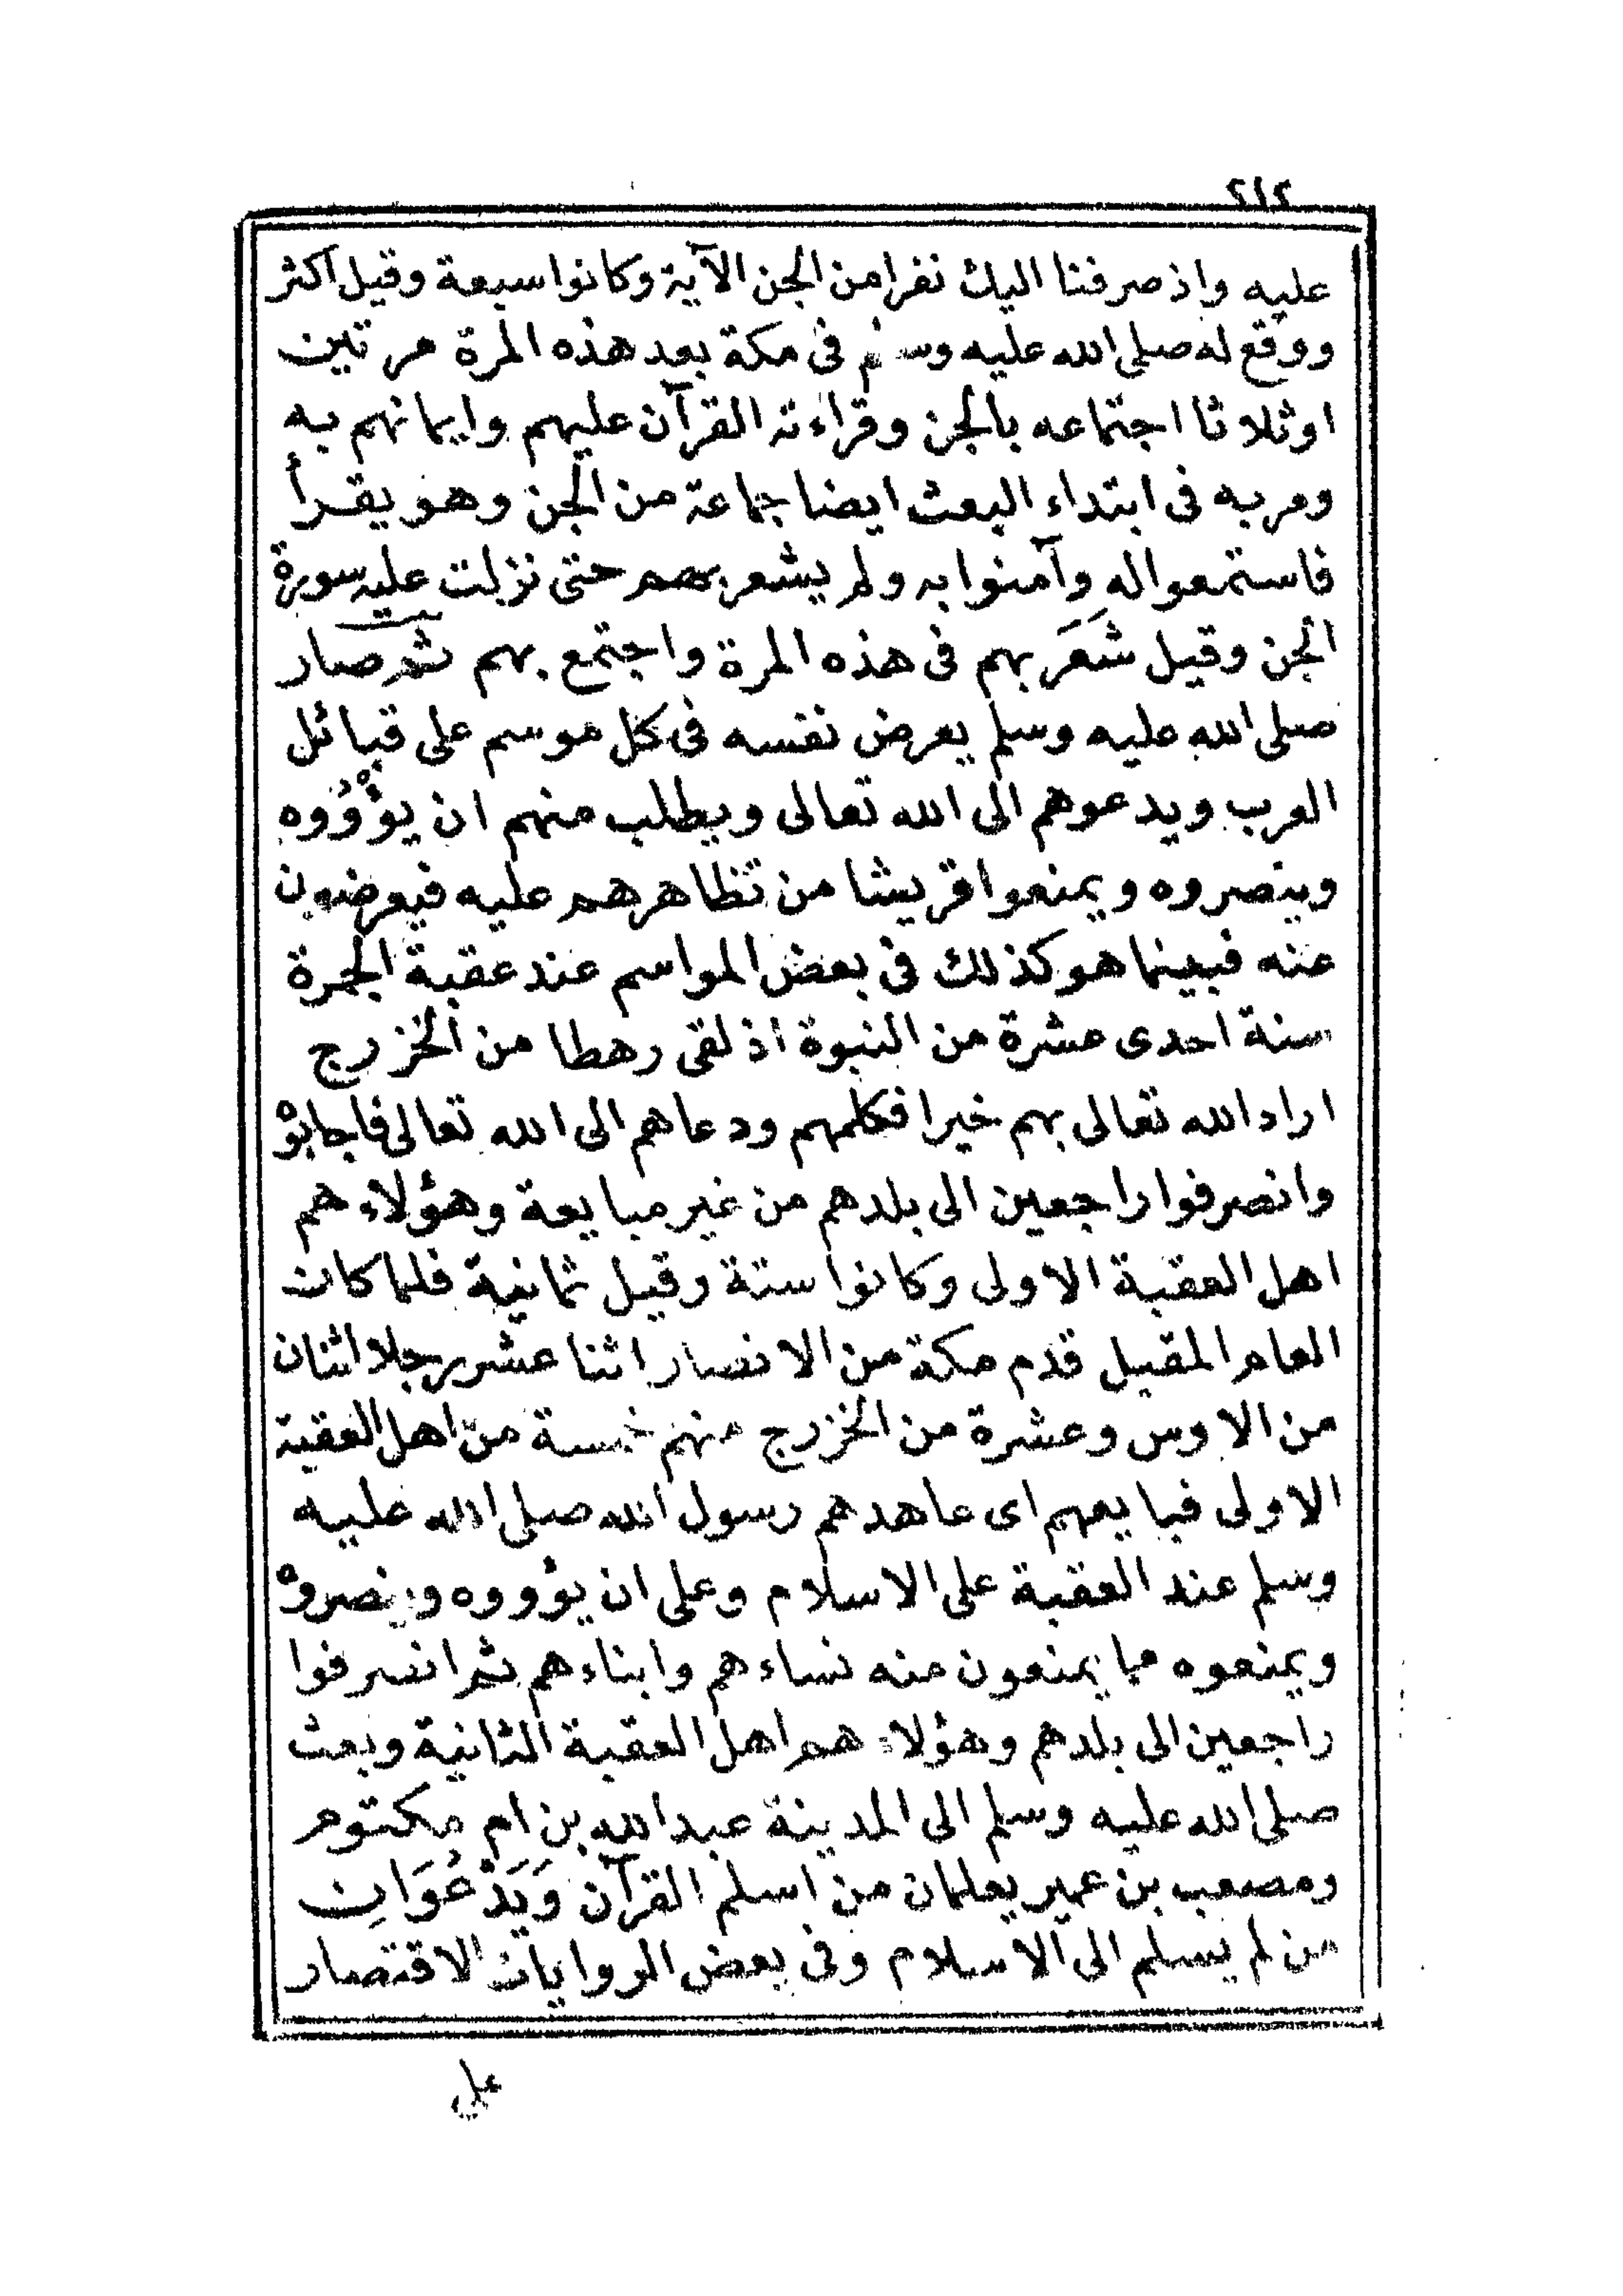 ٢١٢
عليه واذ صرفنا اليك نفرا من الجن الآية وكانوا سبعة وقيل اكثر
ووقع له صلى الله عليه وسلم فى مكة بعد هذه المرة مرتين
اوثلاثا اجتماعه بالجن وقراءته القرآن عليهم وايمانهم به
ومر به فى ابتداء البعث ايضا جماعة من الجن وهو يقرأ
فاستمعوا له وآمنوا به ولم يشعر بهم حتى نزلت عليه سورة
الجن وقيل شَعَرَ بهم فى هذه المرة واجتمع بهم ثم صار
صلى الله عليه وسلم يعرض نفسه فى كل موسم على قبائل
العرب ويدعوهم الى الله تعالى ويطلب منهم ان يؤْوُوه
وينصروه ويمنعوا قريشا من تظاهرهم عليه فيعرضون
عنه فبينما هو كذلك فى بعض المواسم عند عقبة الجمرة
سنة احدى عشرة من النبوة اذ لقى رهطا من الخزرج
اراد الله تعالى بهم خيرا فكلمهم ودعاهم الى الله تعالى فاجابوْ
وانصرفوا راجعين الى بلدهم من غير مبايعة وهؤلاء هم
اهل العقبة الاولى وكانوا ستة وقيل ثمانية فلما كان
العام المقبل قدم مكة من الانصار اثنا عشر رجلا اثنان
من الاوس وعشرة من الخزرج منهم خمسة من اهل العقبة
الاولى فبايعهم اى عاهدهم رسول الله صلى الله عليه
وسلم عند العقبة على الاسلام وعلى ان يؤووه وينصروه
ويمنعوه مما يمنعون منه نساءهم وابناءهم ثم انصرفوا
راجعين الى بلدهم وهؤلاء هم اهل العقبة الثانية وبعث
صلى الله عليه وسلم الى المدينة عبد الله بن ام مكتوم
ومصعب بن عمير يعلمان من اسلم القرآن وَيَدْعُوَانِ
من لم يسلم الى الاسلام وفى بعض الروايات الاقتصار
على